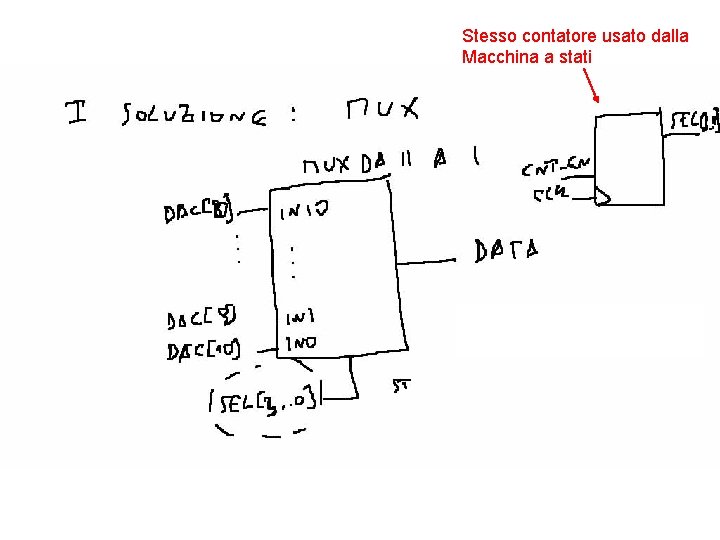 Stesso contatore usato dalla
Macchina a stati
I SOLUZIONE : MUX
MUX DA 11 A 1
CNT_EN
CLK
DAC[0]
IN10
DATA
DAC[9]
IN1
DAC[10]
IN0
SEL[3..0]